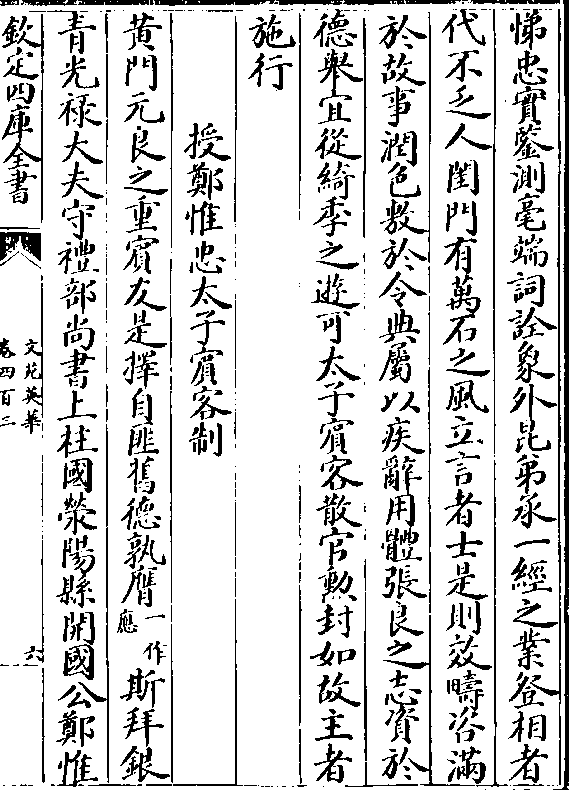 悌忠實鑒測毫端詞詮象外昆弟承一經之業登相者
代不乏人閨門有萬石之風立言者士是則效疇咨滿
於故事潤色敷於令典屬以疾辭用體張良之志資於
德舉宜從綺季之遊可太子賔客散官勲封如故主者
施行
授鄭惟忠太子賔客制
黄門元良之重賔友是擇自匪舊德孰膺一作應斯拜銀
青光禄大夫守禮部尚書上柱國滎陽縣開國公鄭惟
欽定四庫全書
文苑英華
卷四百三
六